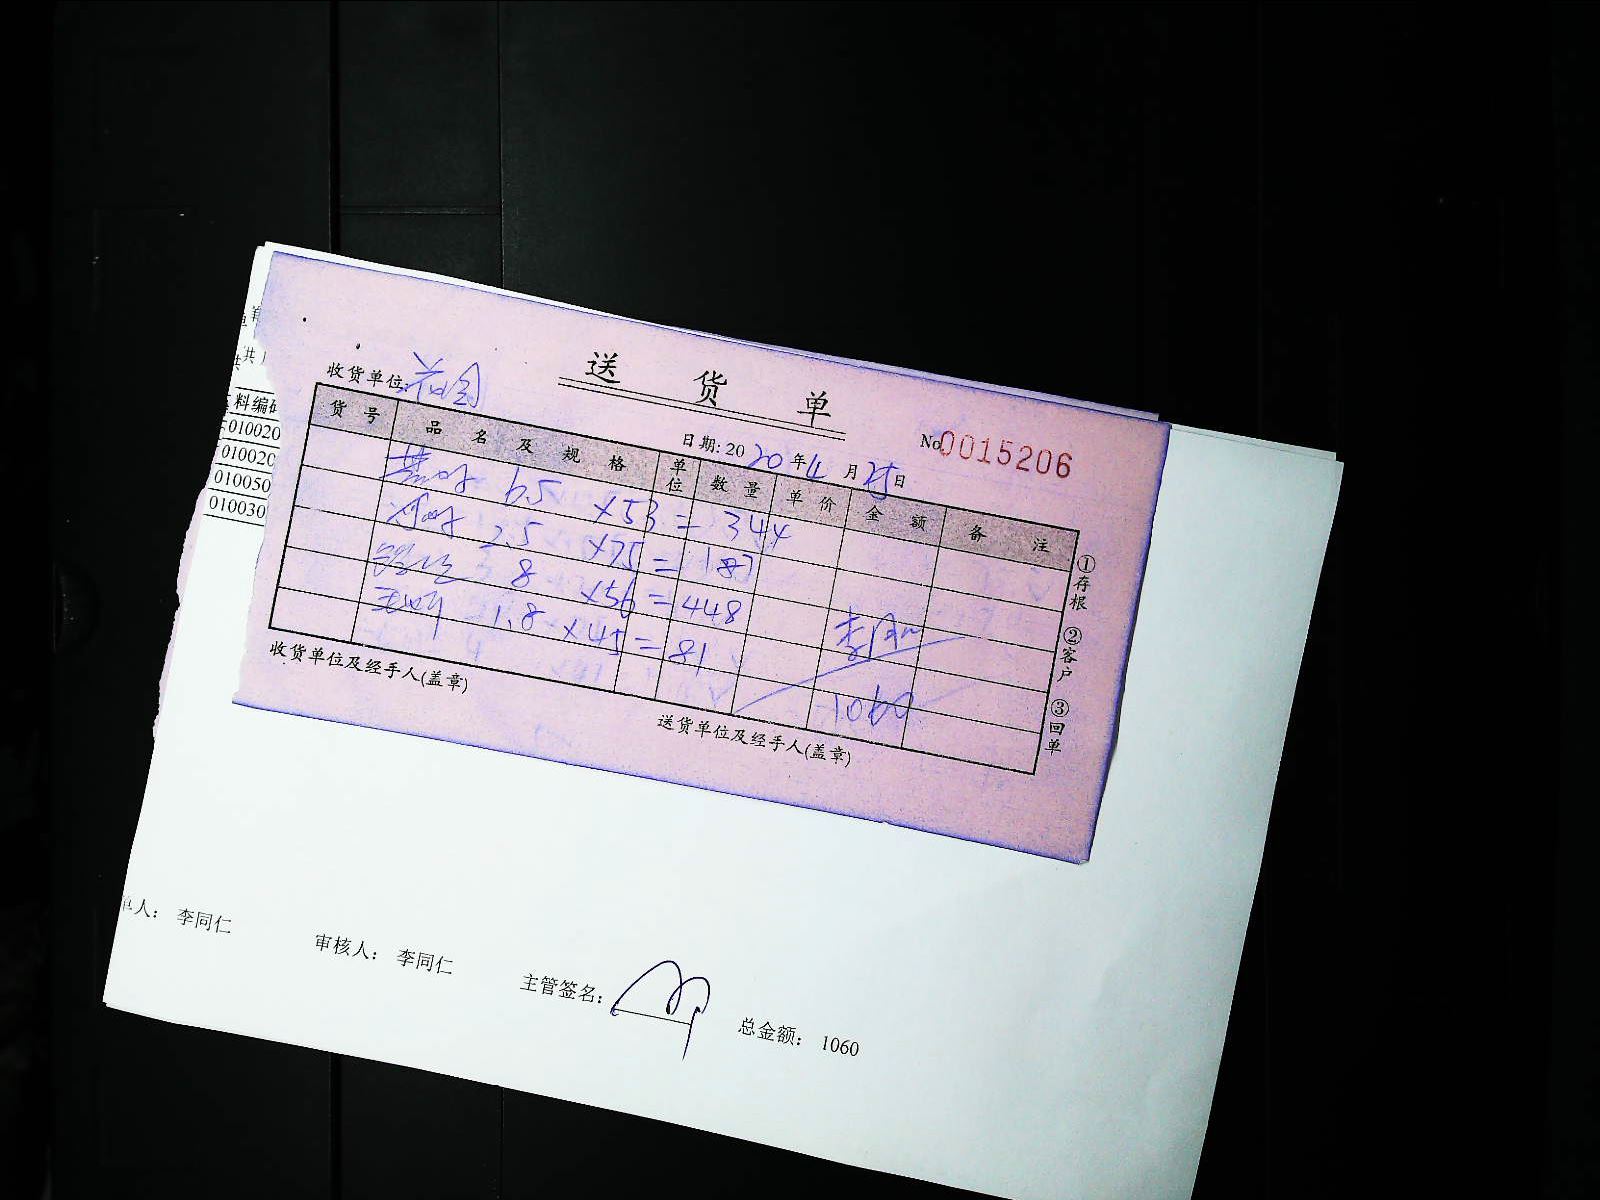 送货单
收货单位:花园
日期: 2020年4月25日
No 0015206
货号 品名及规格 单位 数量 单价 金额 备注
6.5 ×53 = 344
2.5 ×75 = 187
8 ×56 = 448
1.8 ×45 = 81
1060
收货单位及经手人(盖章)
送货单位及经手人(盖章)
①存根 ②客户 ③回单
料编码
010020
010020
010050
010030
单人: 李同仁 审核人: 李同仁 主管签名: 总金额: 1060